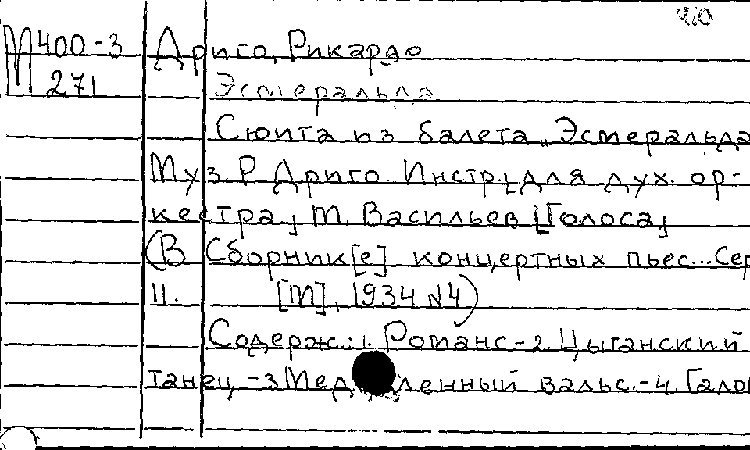 М400-3 Дриго, Рикардо
271 Эсмеральда
Сюита из балета „Эсмеральда
Муз. Р. Дриго. Инстр. [для дух. ор-
кестра] М. Васильев [Голоса]
(В Сборник[е] концертных пьес... Сер
11. [М], 1934 №4)
Содерж.: 1. Романс-2. Цыганский
танец -3 Мед ленный вальс.-4. Гало